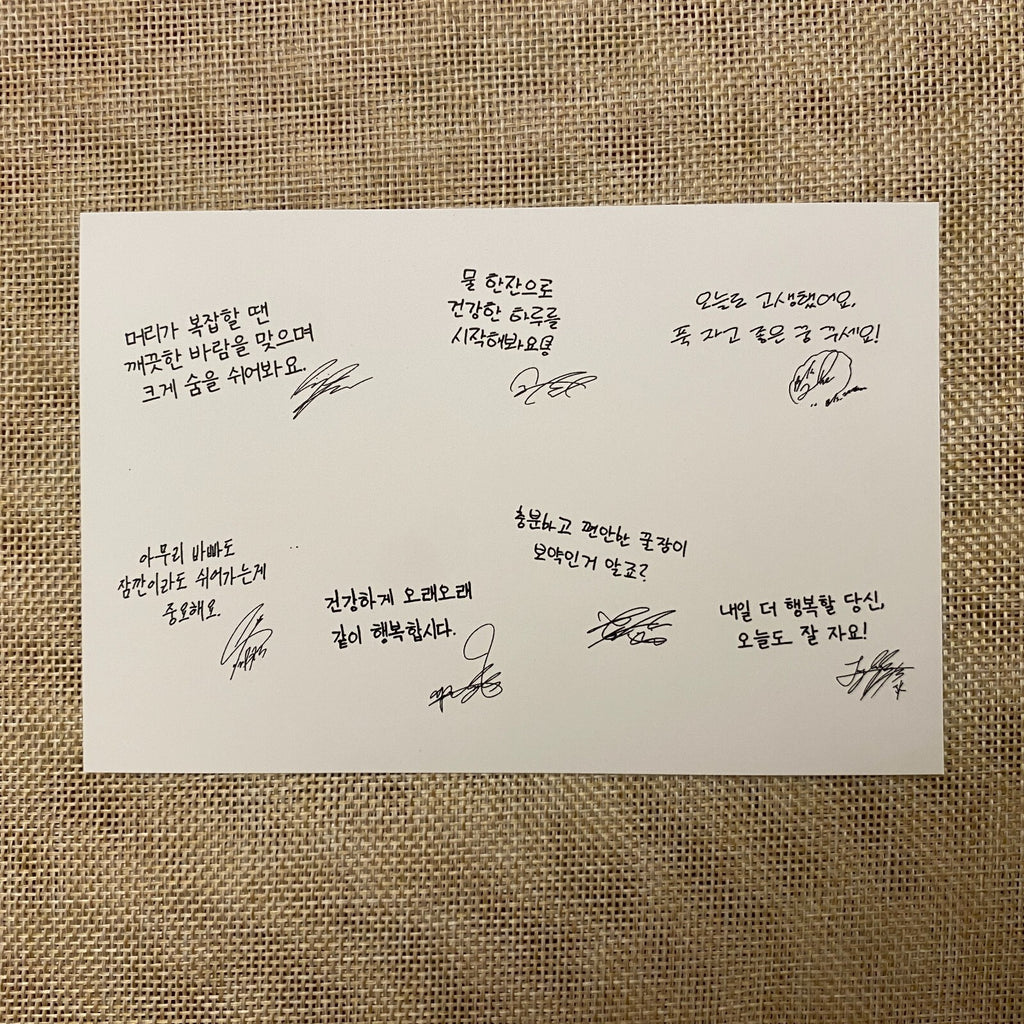 머리가 복잡할 땐
깨끗한 바람을 맞으며
크게 숨을 쉬어봐요.
물 한잔으로
건강한 하루를
시작해봐요
오늘도 고생했어요.
푹 자고 좋은 꿈 꾸세요!
아무리 바빠도
잠깐이라도 쉬어가는게
중요해요.
건강하게 오래오래
같이 행복합시다.
충분하고 편안한 꿀잠이
보약인거 알죠?
내일 더 행복할 당신,
오늘도 잘 자요!